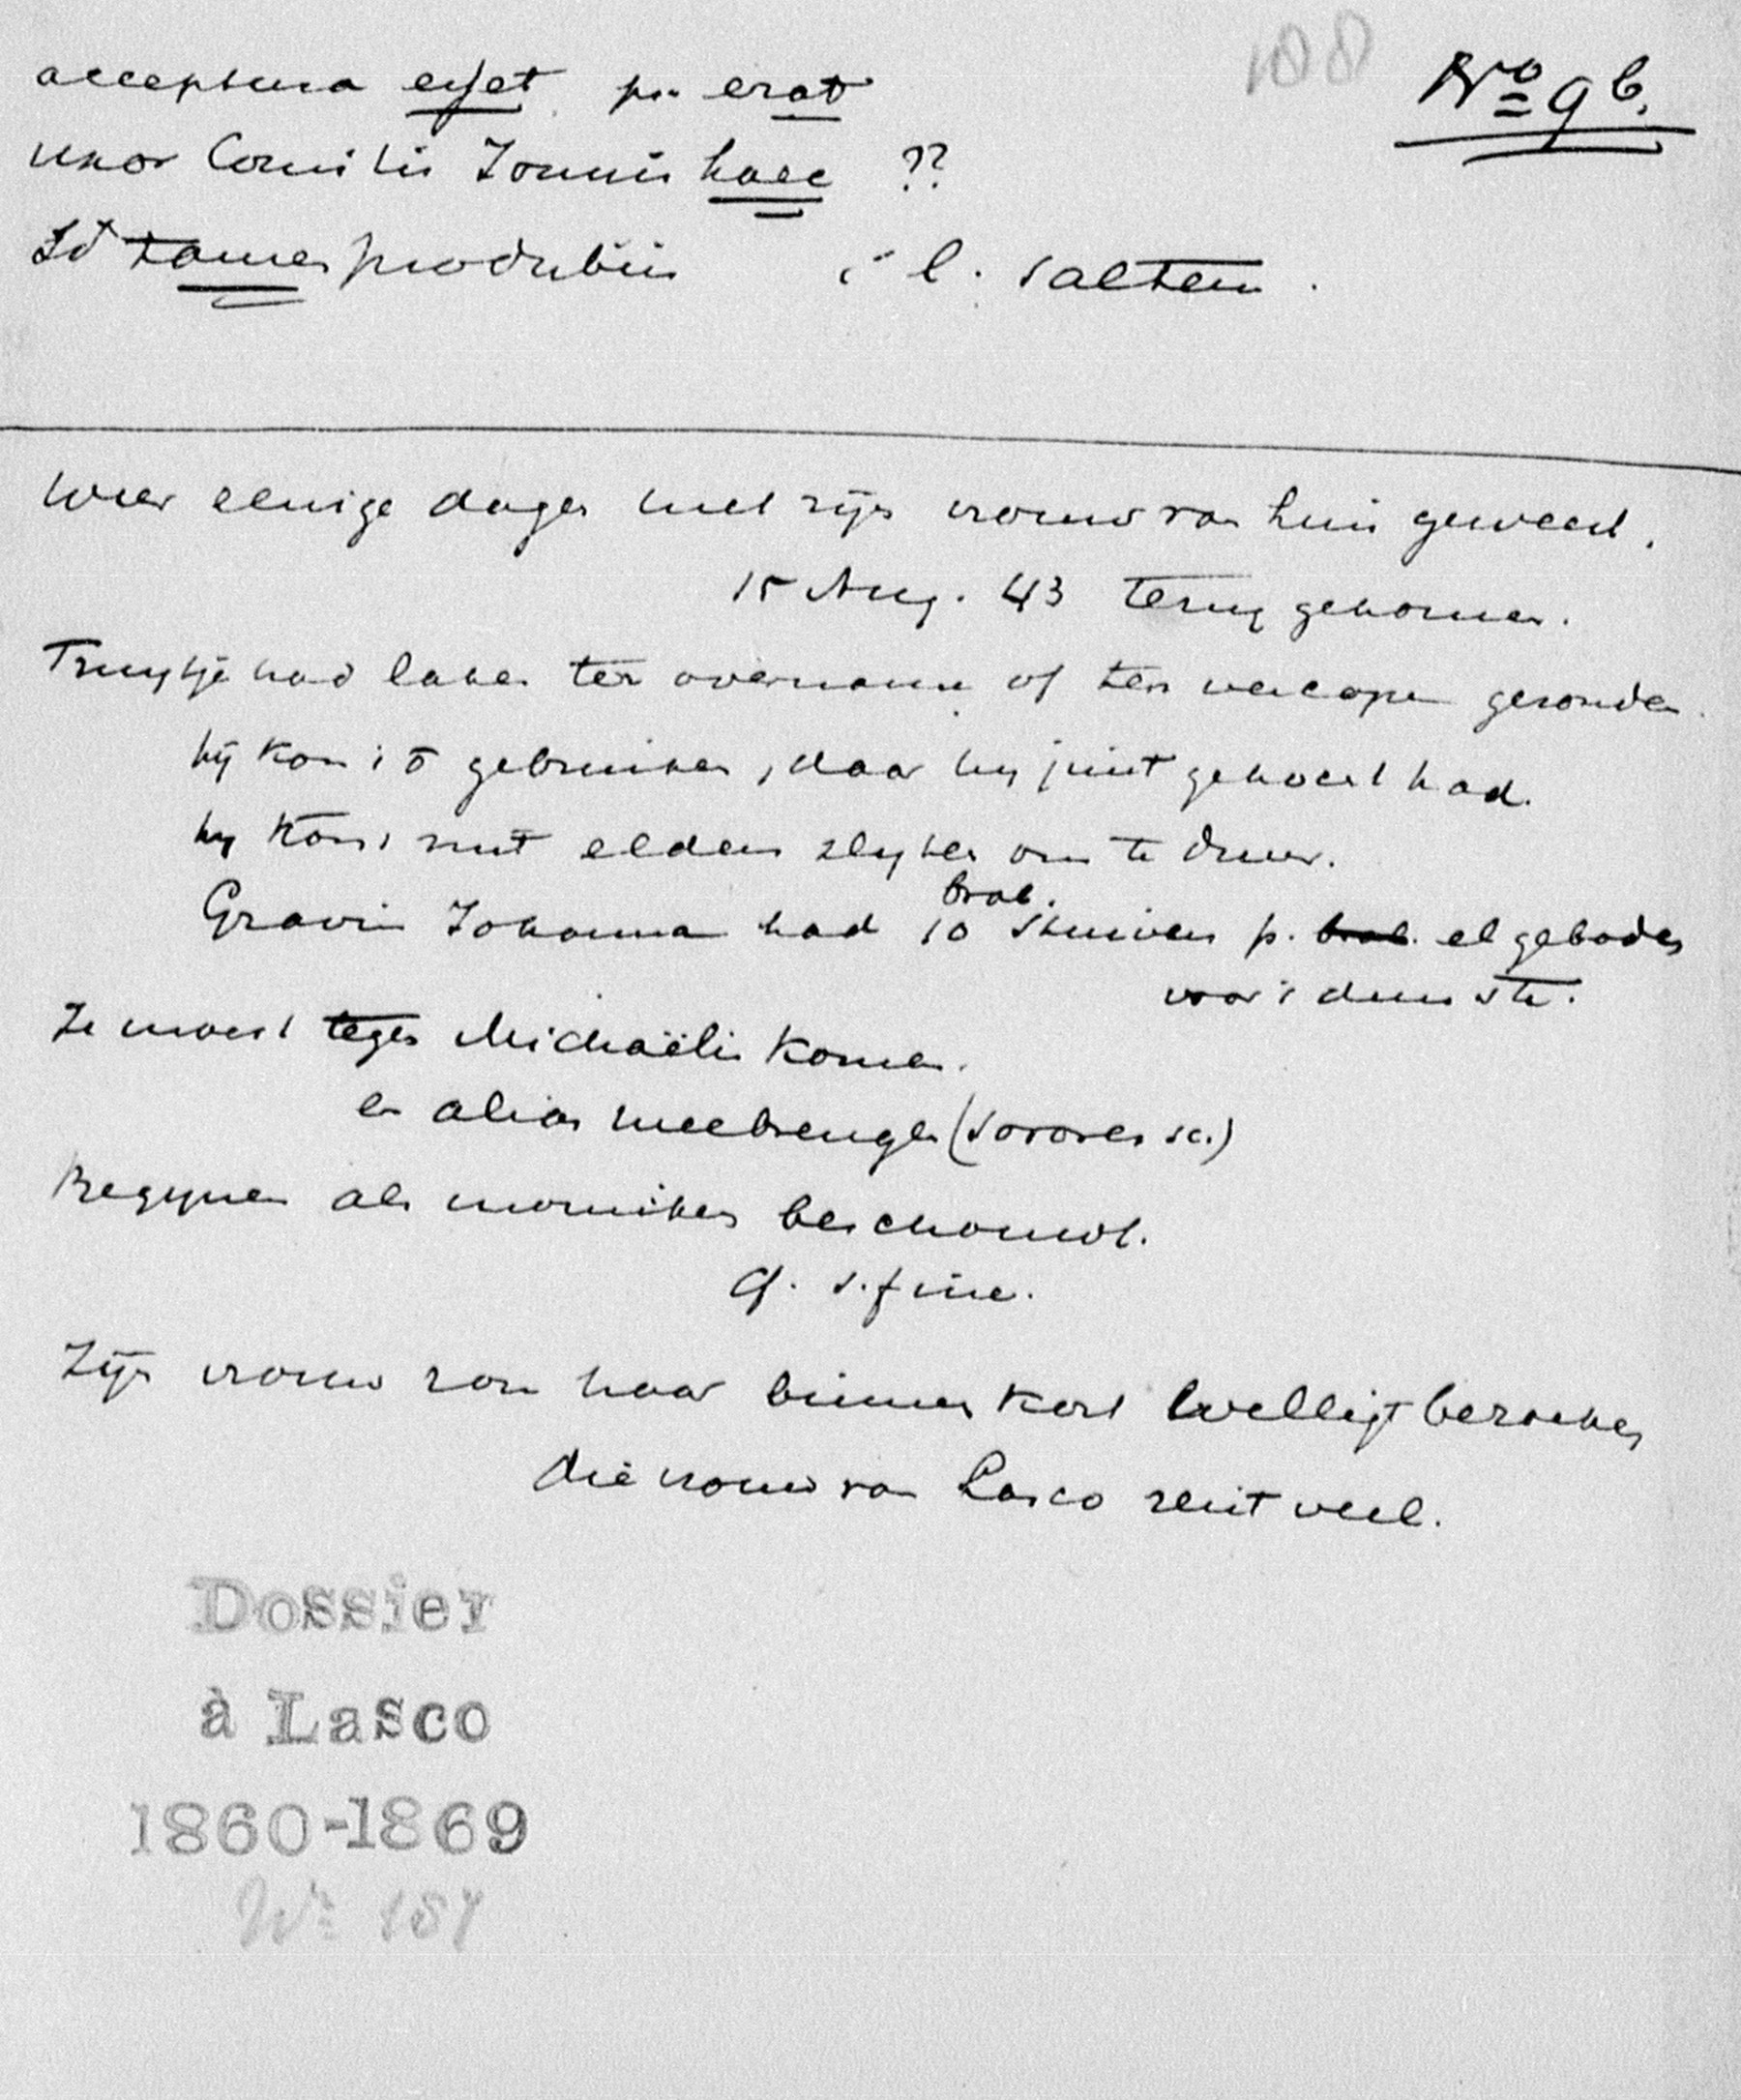 188
No 9b.
acceptura esset pr. erat
uxor Comitis Joannis haec ??
Id tamen produbiis i. l. saltem.
Weer eenige dagen met zijn vrouw van huis geweest.
15 Aug. 43 terug gekomen.
Truytje had laken ter overname of ten vercopen gezonden
hij kon 't ō gebruiken, daar hy juist gekocht had.
hy kon 't niet elders slyten om te duur.
Gravin Johanna had 10 brab. stuivers p. brab. el geboden
voor 't dunste.
Ze moest tegen Michaëlis komen.
en alias meebrengen (sorores sc.)
Begynen als monniken beschouwt.
cf. s. fine.
Zijn vrouw zou haar binnen kort welligt bezoeken
die vrouw van Lasco reist veel.
Dossier
à Lasco
1860-1869
No